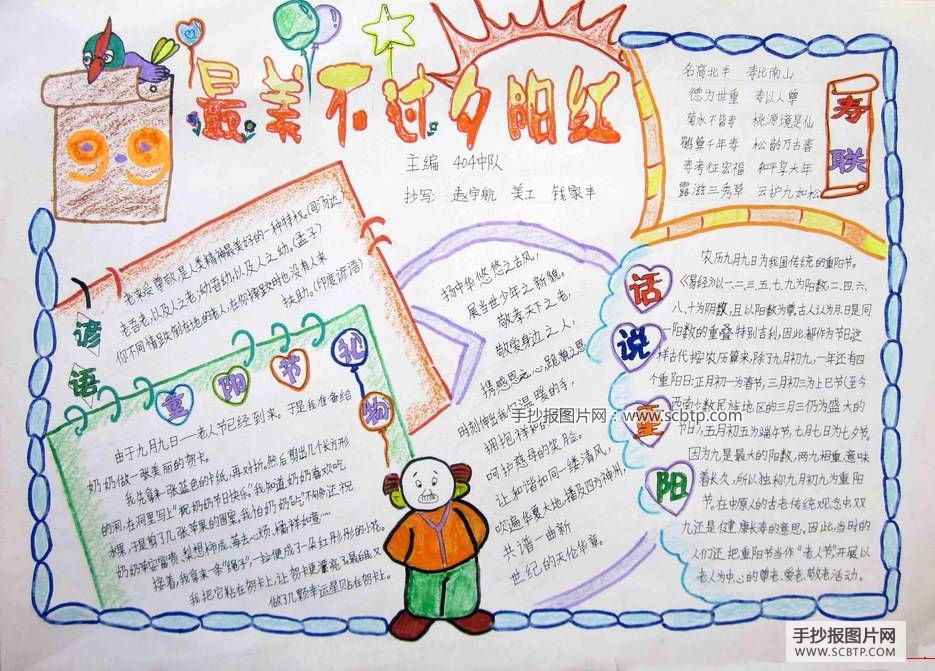 99
最美不过夕阳红
主编 404中队
抄写: 赵宇航 美工 钱家丰
寿联
名高北斗 寿比南山
德为世重 寿以人尊
菊水不皆寿 桃源境是仙
鹤算千年寿 松龄万古春
寿考征宏福 和平享大年
露滋三秀草 云护九如松
谚语
老来受尊敬,是人类精神最美好的一种特权。(司汤达)
老吾老,以及人之老;幼吾幼,以及人之幼。(孟子)
你不同情跌倒在地的老人,在你摔跤时也没有人来
扶助。(印度谚语)
重阳节礼物
由于九月九日——老人节已经到来,于是我准备给
奶奶做一张美丽的贺卡。
我先拿来一张蓝色的卡纸,再对折,然后剪出几个长方形
的洞,在洞里写上“祝奶奶节日快乐”。我知道奶奶喜欢吃
水果,于是剪了几张苹果的图案,我怕奶奶吃不够,还祝
奶奶苹安富贵、梨想
接着,我拿来一条“绳子”,一拉便成了一朵红彤彤的小花。
我把它粘在贺卡上,让贺卡更漂亮了
做了几颗幸运星贴在贺卡上。
扬中华悠悠之古风,
展当世少年之新貌。
敬孝天下之老,
敬爱身边之人,
携感恩之心,
用刻伸出我们温暖的手,
拥抱祥和的
呵护慈母的笑脸。
让和谐如同一缕清风,
吹遍华夏大地,播及四方神州,
共谱一曲新
世纪的天伦华章。
手抄报图片网:www.scbtp.com
话说重阳
农历九月九日为我国传统的重阳节。
《易经》以一、二、三、五、七、九为阳数,二、四、六、
八、十为阴数,且以阳数为尊,古人认为月日是同
一阳数的重叠特别吉利,因此都作为节日。这
样古代按农历算来,除了九月初九,一年还有四
个重阳日:正月初一为春节,三月初三为上巳节(至今
西南少数民族地区的三月三仍为盛大的
节日),五月初五为端午节,七月七日为七夕节。
因为九是最大的阳数,两九相重,意味
着长久,所以独称九月初九为重阳
节。在中原人的古老传统观念中,双
九还是健康长寿的意思。因此,当时的
人们还把重阳节当作“老人节”,开展以
老人为中心的尊老、爱老、敬老活动。
手抄报图片网
WWW.SCBTP.COM